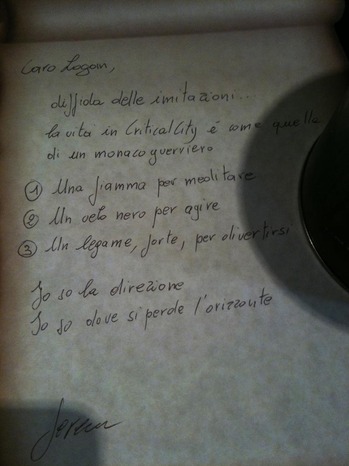 Caro Logan,
diffida delle imitazioni...
la vita in CriticalCity è come quella
di un monaco guerriero
① Una fiamma per meditare
② Un velo nero per agire
③ Un legame, forte, per divertirsi
Io so la direzione
Io so dove si perde l'orizzonte